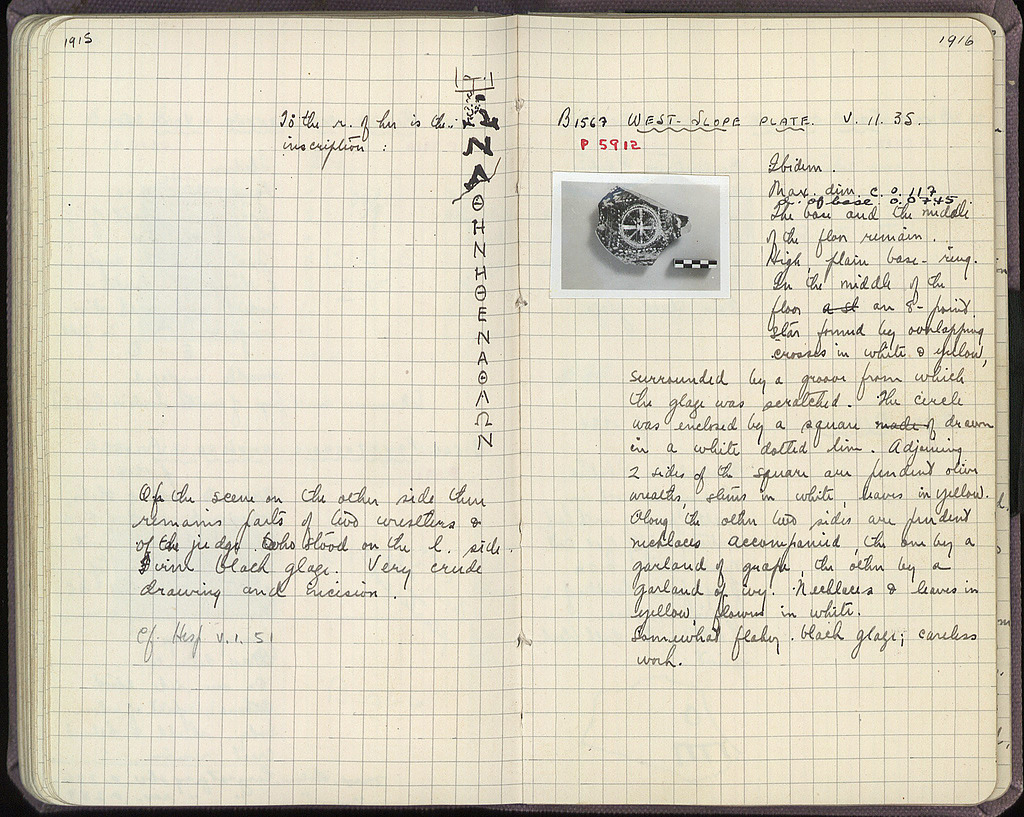 1915
To the r. of her is the
inscription :
ΝΑ
ΘΗΝΗΘΕΝΑΘΛΩΝ
Of the scene on the other side there
remains parts of two wrestlers &
of the judge who stood on the l. side.
Firm black glaze. Very crude
drawing and incision.
Cf. Hesp V.1. 51
1916
B1567 WEST-SLOPE PLATE. V. 11. 35.
P 5912
Ibidem.
Max. dim. c. 0.117
D. of base 0.0745.
The base and the middle
of the floor remain.
High, plain base-ring.
In the middle of the
floor a st an 8-point
star formed by overlapping
crosses in white & yellow,
surrounded by a groove from which
the glaze was scratched. The circle
was enclosed by a square made of drawn
in a white dotted line. Adjoining
2 sides of the square are pendent olive
wreaths, stems in white, leaves in yellow.
Along the other two sides are pendent
necklaces accompanied, the one by a
garland of grape, the other by a
garland of ivy. Necklaces & leaves in
yellow, flowers in white.
Somewhat flakey black glaze; careless
work.